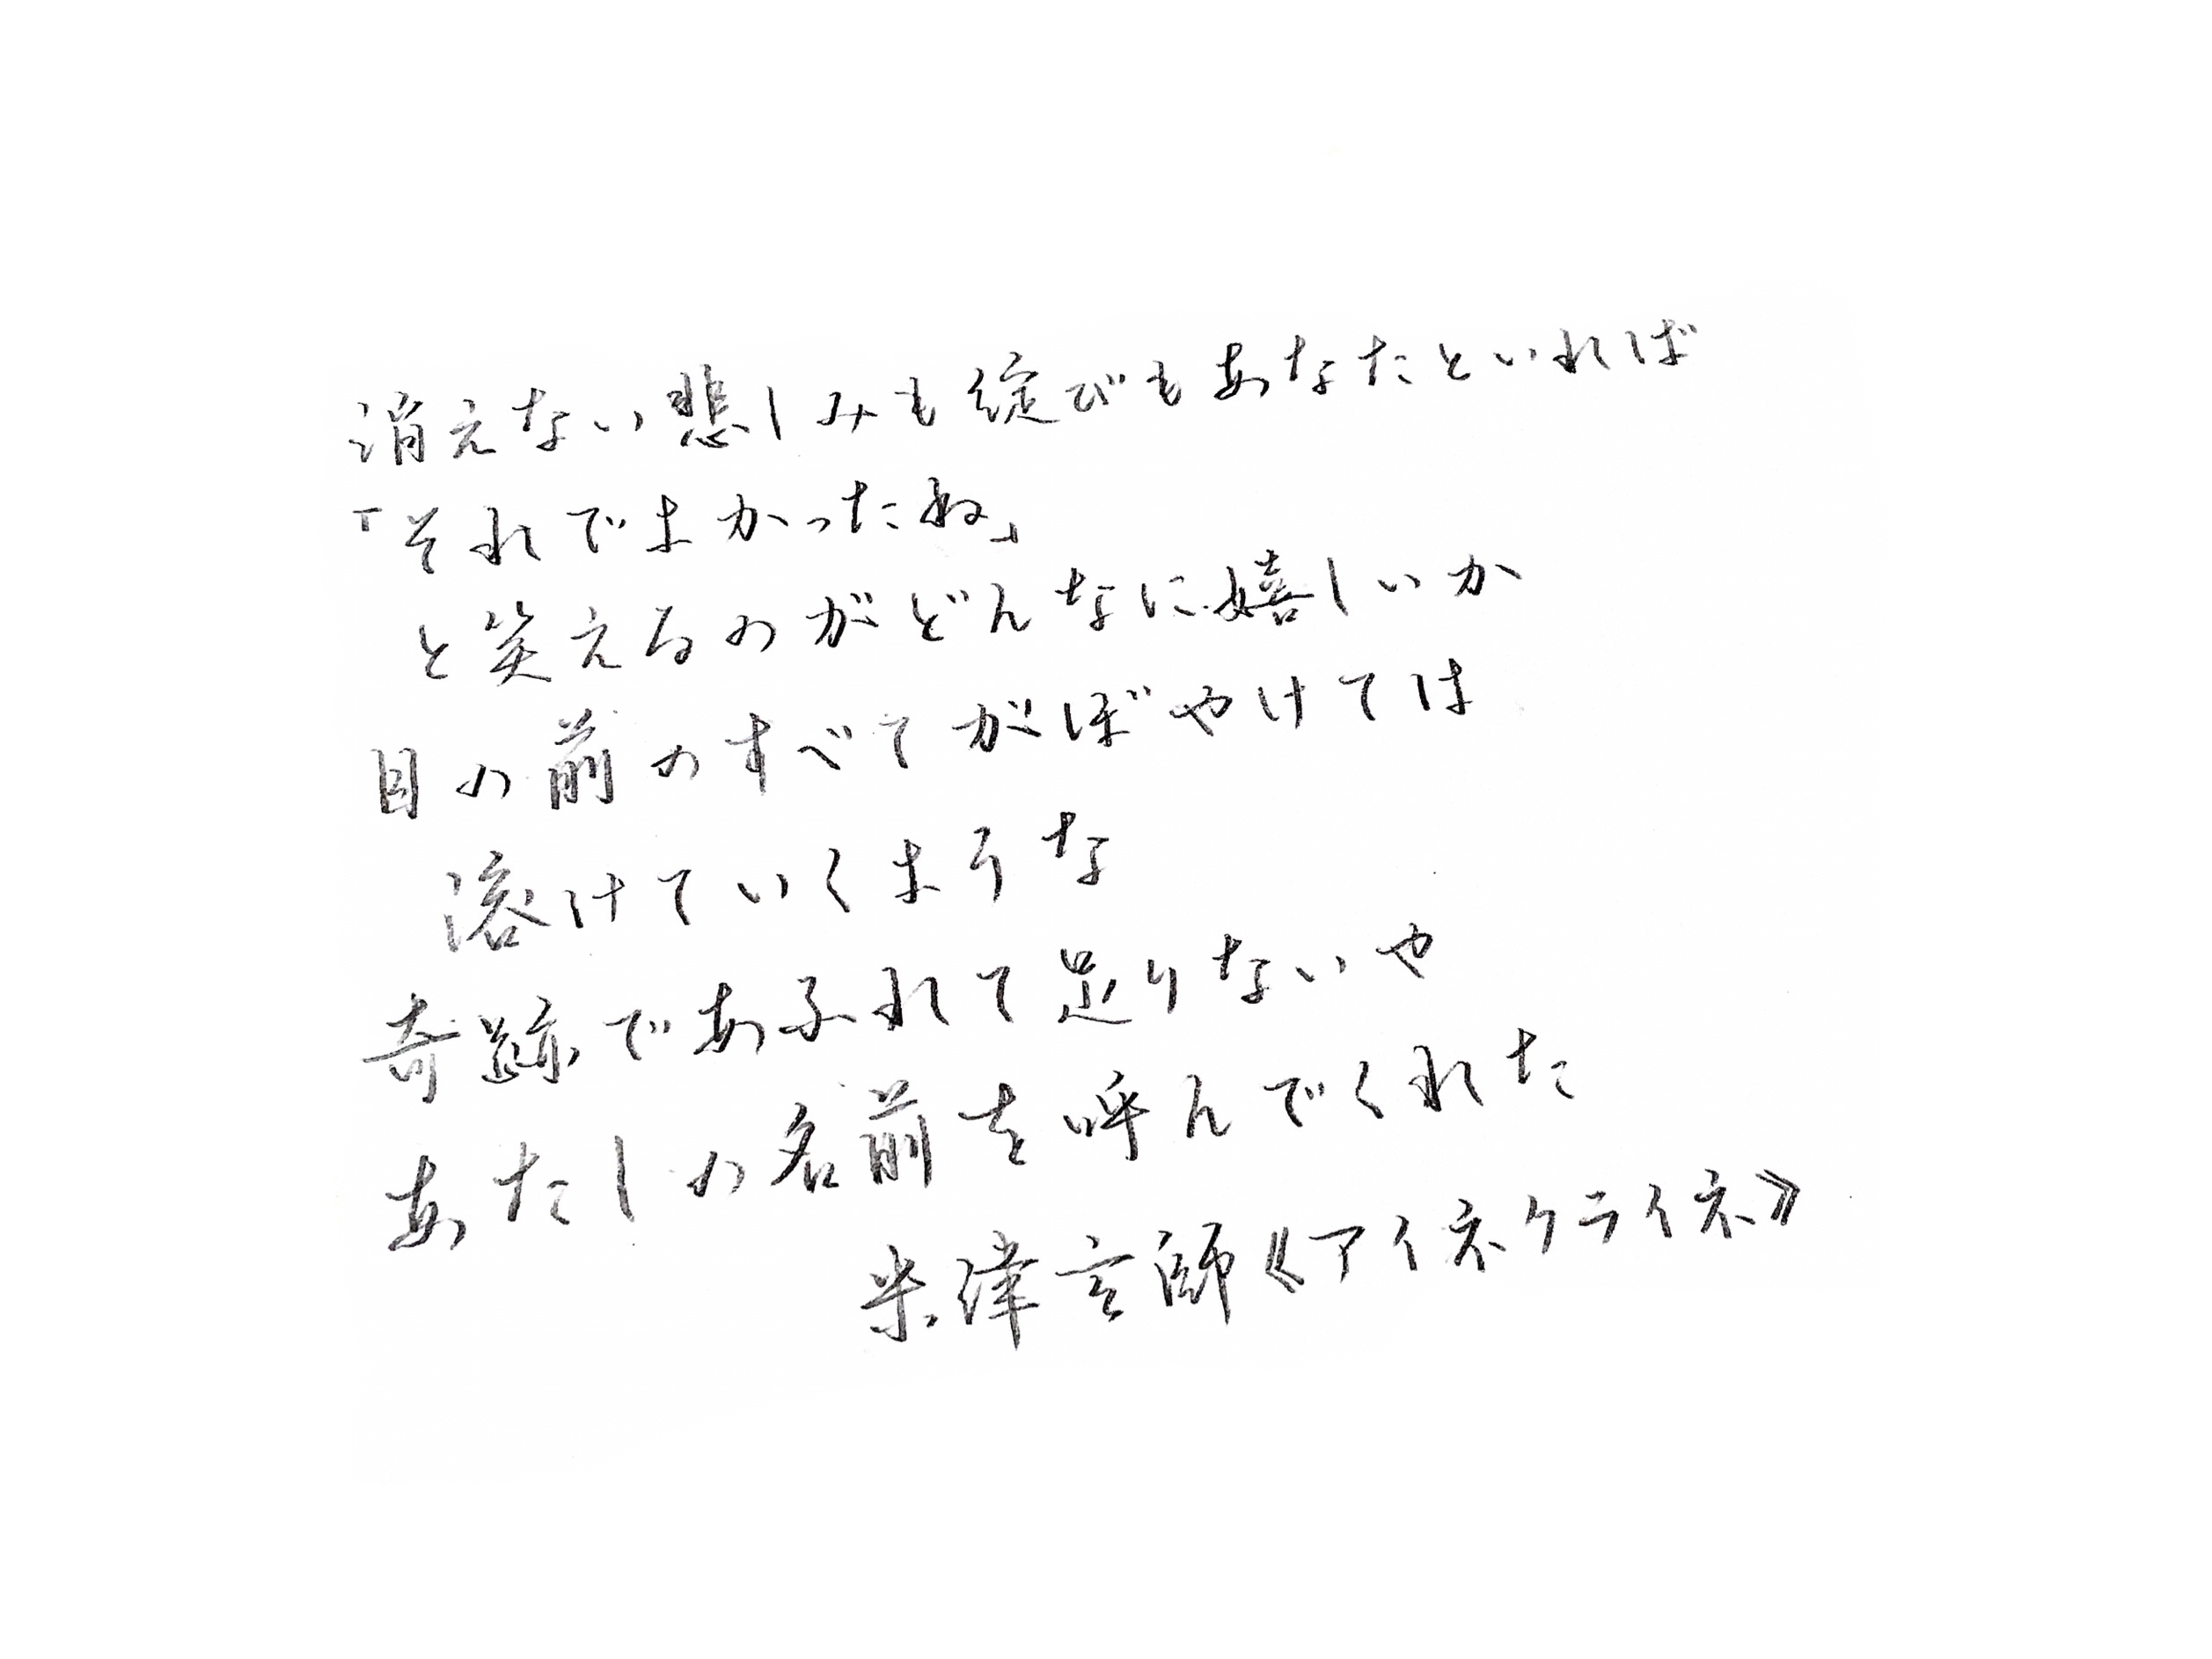 消えない悲しみも綻びもあなたといれば
「それでよかったね」
と笑えるのがどんなに嬉しいか
目の前のすべてがぼやけては
溶けていくような
奇跡であふれて足りないや
あたしの名前を呼んでくれた
米津玄師《アイネクライネ》